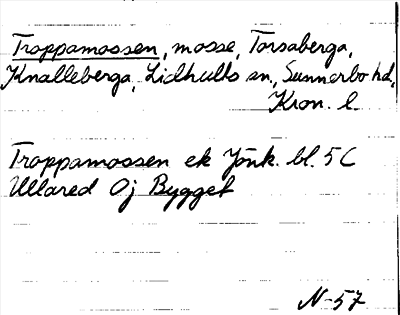 Trappamossen, mosse, Torsaberga,
Knalleberga, Lidhults sn, Sunnerbo hd,
Kron. l.
Trappamossen ek Jönk. bl. 5C
Ullared Öj Bygget
N-57